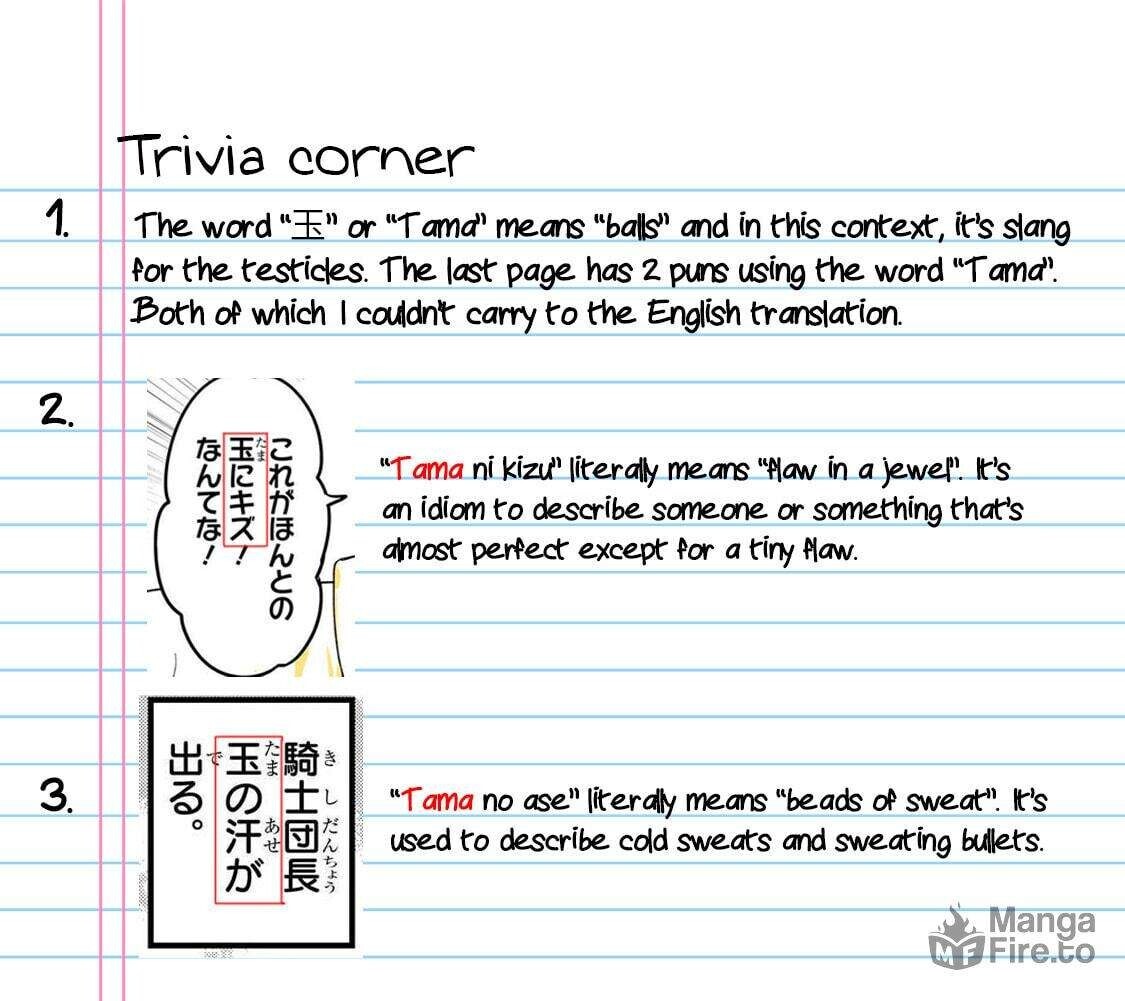 Trivia corner
1.
The word "玉" or "Tama" means "balls" and in this context, it's slang
for the testicles. The last page has 2 puns using the word "Tama".
Both of which I couldn't carry to the English translation.
2.
これがほんとの
玉にキズ!
たま
なんてな!
"Tama ni kizu" literally means "flaw in a jewel". It's
an idiom to describe someone or something that's
almost perfect except for a tiny flaw.
3.
騎士団長
きしだんちょう
玉の汗が
たま あせ
出る。
で
"Tama no ase" literally means "beads of sweat". It's
used to describe cold sweats and sweating bullets.
MF
Manga
Fire.to